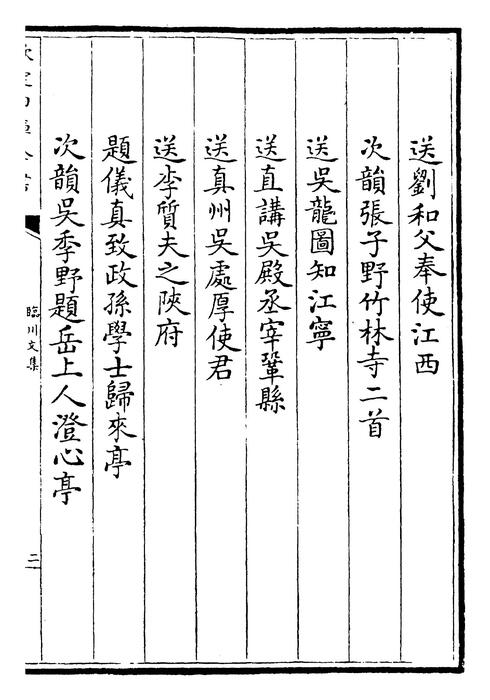 送劉和父奉使江西
次韻張子野竹林寺二首
送吳龍圖知江寧
送直講吳殿丞宰鞏縣
送真州吳處厚使君
送李質夫之陝府
題儀真致政孫學士歸來亭
次韻吳季野題岳上人澄心亭
欽定四庫全書
臨川文集
二